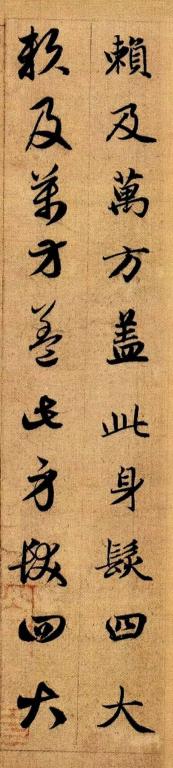 賴及萬方蓋此身髮四大
賴及萬方蓋此身髮四大